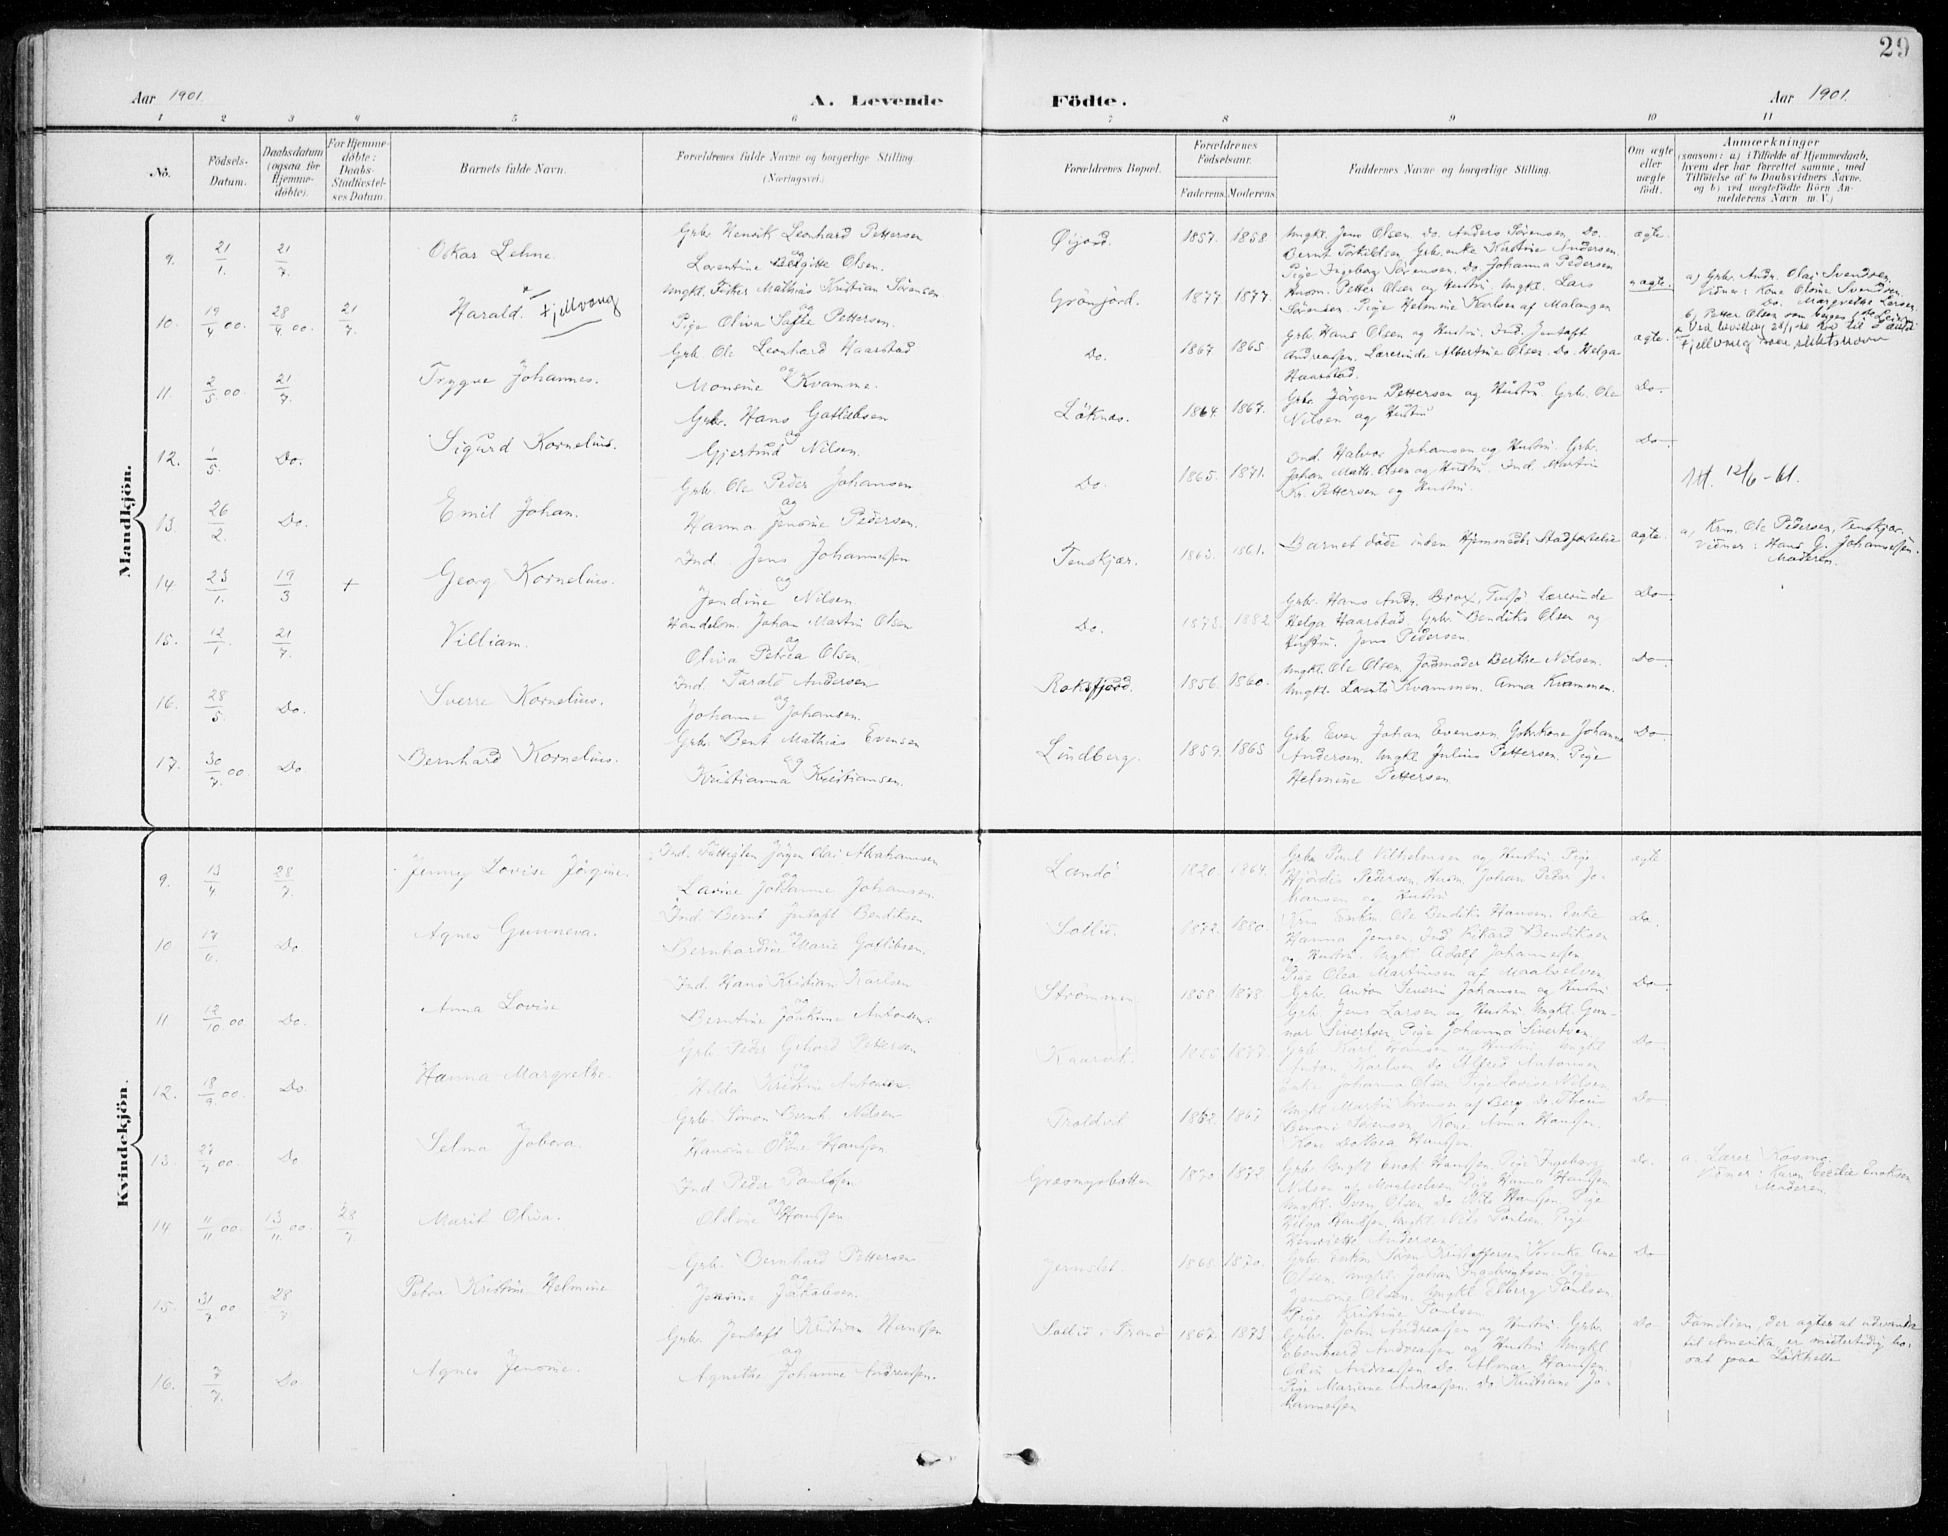 29
Aar 1901.
A. Levende
Födte.
Aar 1901.
1 2 3 4 5 6 7 8 9 10 11
No.
Födsels-
Datum.
Daabsdatum
(ogsaa for
Hjemme-
døbte).
For Hjemme-
døbte:
Daabs-
Stadfæstel-
ses Datum.
Barnets fulde Navn.
Forældrenes fulde Navne og borgerlige Stilling.
(Næringsvei.)
Forældrenes Bopæl.
Forældrenes
Födselsaar.
Faderens. Moderens.
Faddernes Navne og borgerlige Stilling.
Om ægte
eller
uægte
födt.
Anmærkninger
(saasom: a) i Tilfælde af Hjemmedaab,
hvem der har forrettet samme, med
Tilföielse af to Daabsvidners Navne,
og b) ved uægtefödte Börn An-
melderens Navn m. V.)
Mandkjön.
9. 21/1. 21/7. Oskar Lehne.
Grb. Henrik Leonhard Pettersen
og
Lorentine Birgitte Olsen.
Øijord. 1857. 1858.
Ungkl. Jens Olsen. Do. Anders Sørensen. Do.
Bernt Torkildsen. Grb.enke Kristine Andersen.
Pige Ingeborg Sørensen. Do Johanna Pedersen
ægte.
10. 19/4 00. 28/4 00. 21/7. Harald. * Fjellvang
Ungkl. Fisker Mathias Kristian Sørensen
og
Pige Oliva Sofie Pettersen.
Grönfjord. 1877. 1877.
Husm. Petter Olsen og Hustru. Ungkl. Lars
Sørensen. Pige Helmine Karlsen af Malangen
uægte.
a) Grb. Andr. Olai Svendsen.
Vidner: Kone Oline Svendsen
Do. Margrethe Larsen
b) Petter Olsen
Fjellvang som slektsnavn
11. 2/5 00. 21/7. Trygve Johannes.
Grb. Ole Leonhard Haarstad
og
Monsine Kvamme.
Do. 1867. 1865.
Grb. Hans Olsen og Hustru. Ind. Jentoft
Andreassen. Lærerinde Albertine Olsen. Do. Helga
Haarstad.
ægte.
12. 1/5. Do. Sigurd Kornelius.
Grb. Hans Gotlibsen
og
Gjertrud Nilsen.
Löknes. 1864. 1867.
Grb. Jörgen Pettersen og Hustru. Grb. Ole
Nilsen og Hustru
Do
13. 26/2. Do. Emil Johan.
Grb. Ole Peder Johansen
og
Hanna Jensine Pedersen.
Do. 1865. 1871.
Ind. Halvor Johansen og Hustru. Grb.
Johan Math. Olsen og Hustru. Ind. Martin
Kr. Pettersen og Hustru.
Do
12/6-61.
14 23/1. 19/3 + Georg Kornelius.
Ind. Jens Johannessen
og
Jendine Nilsen.
Tenskjær. 1861.
Barnet døde inden Hjemmedb. Stadfæstelse
ægte.
a) Krm. Ole Pedersen, Tenskjær.
Vidner: Hans G. Johannessen.
Moderen.
15. 12/1. 21/7. Villiam.
Handelsm. Johan Martin Olsen
og
Oliva Petrea Olsen.
Do. 1873. 1882.
Grb. Hans Andr. Brox, Tussø. Lærerinde
Helga Haarstad. Grb. Bendiks Olsen og
Hustru. Jens Pedersen.
Do
16. 28/5. Do. Sverre Kornelius.
Ind. Tarald Andersen
og
Johanne Johansen.
Roksfjord. 1856. 1860.
Ungkl. Ole Olsen. Jordmoder Berthe Nilsen.
Ungkl. Lorents Kvammen. Anna Kvammen.
Do
17. 30/7. 00. Do Bernhard Kornelius.
Grb. Bent Mathias Evensen
og
Kristianna Kristiansen.
Lindberg. 1859. 1865
Grb. Even Johan Evensen. Grb.kone Johanna
Andersen. Ungkl. Julius Pettersen. Pige
Helmine Pettersen.
Do
Kvindekjön.
9. 13/4 28/7. Jenny Lovise Jörgine.
Ind. Jörgen Olai Abrahamsen
og
Lavine Johanne Johansen.
Landö 1820. 1864.
Grbr. Paul Vilhelmsen og Hustru. Pige
Hjördis Pedersen. Husm. Johan Peder Jo-
hansen og Hustru
ægte
10 17/6. Do Agnes Gunneva.
Ind. Bernt Jentoft Bendiksen
og
Bernhardine Marie Gotlibsen.
Sollid. 1872. 1880.
Ole Bendiks Hansen. Enke
Hanna Jensen. Ind. Rikard Bendiksen
og Hustru. Ungkl. Adolf Johannessen.
Pige Olea Martinsen af Maalselven.
Do.
11 12/10 00 Do. Anna Lovise
Ind. Hans Kristian Karlsen
og
Berntine Joakime Antonsen.
Strömmen 1858. 1878.
Grb. Anton Severin Johansen og Hustru
Grb. Jens Larsen og Hustru. Ungkl. Gun-
nar Sivertsen. Pige Johanna Sivertsen.
Do
12. 18/9. 00. Do. Hanna Margrethe.
Grb. Peder Gerhard Pettersen
og
Hilda Kristine Antonsen.
Kaarvik. 1877.
Grb. Karl og Hustru. Ungkl
Anton Karlsen. Do Alfred Antonsen
Johanna Olsen. Pige Lovise Nilsen.
Do
13. 27/7. 00. Do Selma Jobora.
Grb. Simon Bernt Nilsen
og
Hansine Oline Hanssen.
Troldvik 1862. 1867
Ungkl. Martin Sørensen af Berg.
Benoni Sørensen. Kone Anna Hanssen.
Kone Dorthea Hanssen.
Do
14 11/11 00. 13/11. 00. 28/7. Marit Oliva.
Ind. Peder Paulsen
og
Oldine Hanssen
Græsmyrbotten 1870. 1872
Grb. Ungkl. Enok Hanssen. Pige Ingeborg
Nilsen af Maalselven. Pige Hanna Hanssen
Ungkl. Sven Olsen. Do Nils Hanssen. Pige
Helga Hanssen. Ungkl. Nils Paulsen. Pige
Henriette Andersen.
Do.
a. Lærer Rasmo.
Vidner: Karen Cecilie Enoksen
Moderen.
15. 31/7 00 28/7 Petra Kristine Helmine
Grb. Bernhard Pettersen
og
Jensine Jakobsen.
Jernslet. 1868. 1870.
Grb. Enkm. Sören Kristoffersen.
Olsen. Ungkl. Johan Ingebrigtsen. Pige
Jensine Olsen. Ungkl Elberg Paulsen.
Pige Kristine Paulsen.
Do
16. 7/7. Do Agnes Jensine.
Grb. Jentoft Kristian Hanssen
og
Agnethe Johanne Andreassen.
Sollid i Tranö 1867. 1873.
Grb. John Andreassen og Hustru. Grb.
Edenhard Andreassen og Hustru. Ungkl.
Odin Andreassen. Do Alvnar Hanssen.
Pige Mariane Andreassen. Do Kristiane Jo-
hannessen
Do
Familien, der agter at udvandre
til Amerika, er midlertidig bo-
sat paa Lökhelle